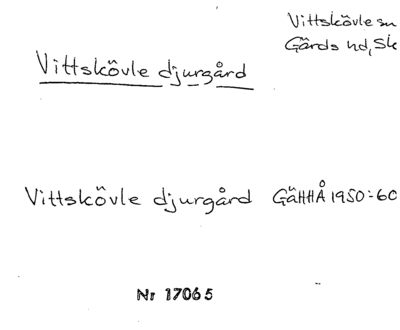 Vittskövle sn
Gärds hd, Sk
Vittskövle djurgård
Vittskövle djurgård GäHHÅ 1950:60
Nr 17065